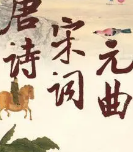 唐诗
宋词
元曲